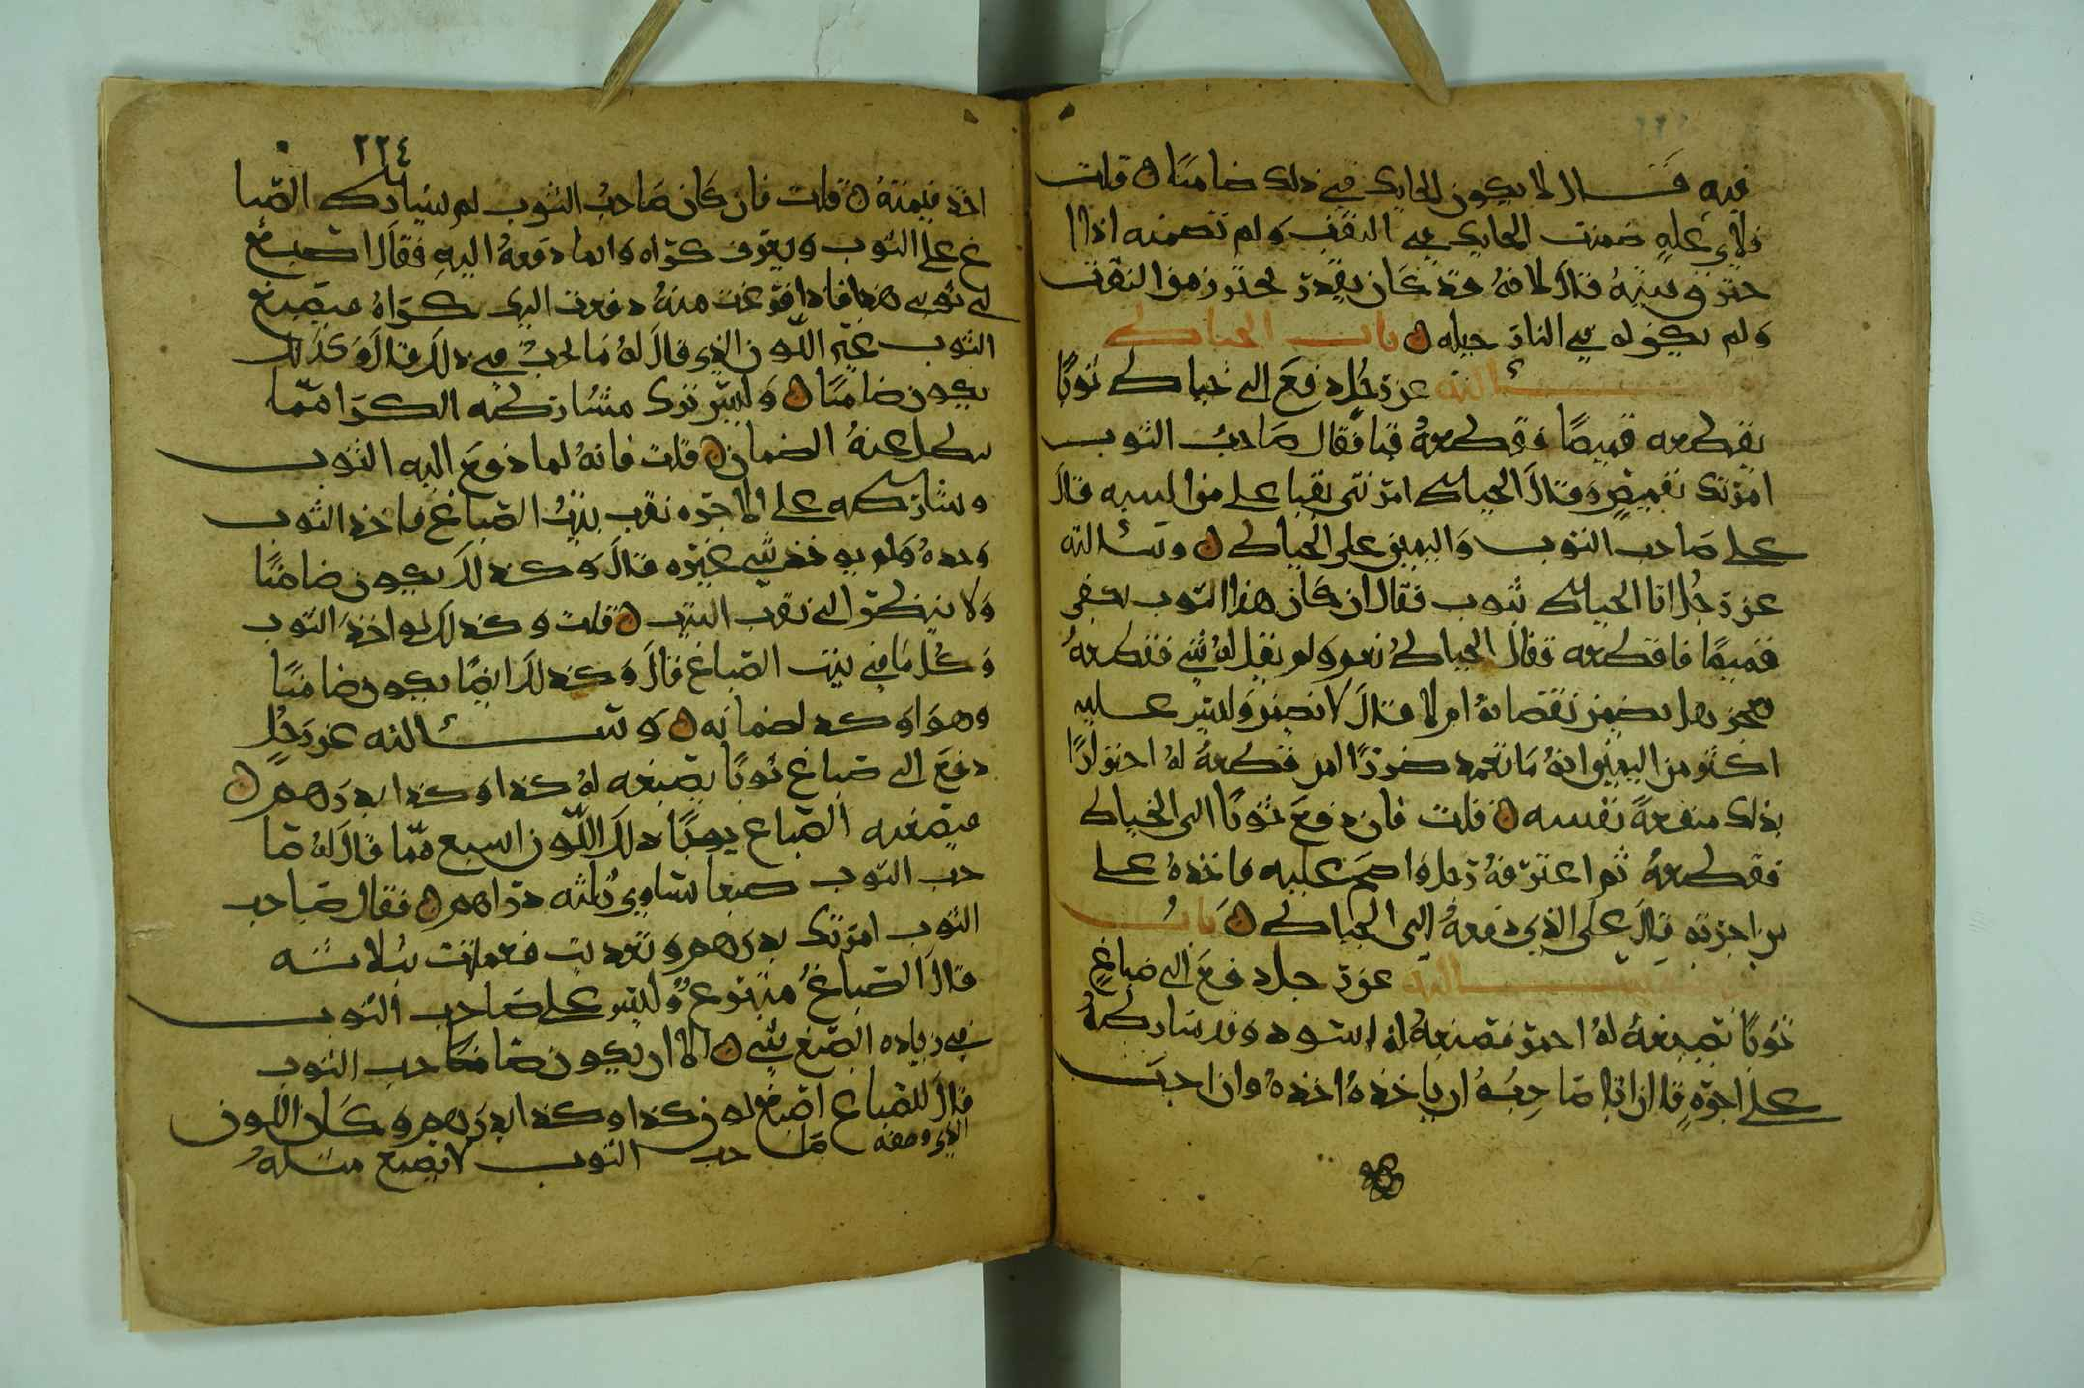 فيه قال لا يكون الحايك في ذلك ضامنا قلت
فلاي علة ضمنت الحايك في النقف ولم تضمنه اذا
حترق بيته قال لانه قد كان يقدر يحترز من النقف
ولم يكن له في النار حيلة باب الخياط
سالته عن رجل دفع الى خياط ثوبا
يقطعه قميصا فقطعه قبا فقال صاحب الثوب
امرتك بقميص وقال الخياط امرتني بقبا على من البينه قال
على صاحب الثوب واليمين على الخياط وسالته
عن رجل اتا الخياط بثوب فقال ان كان هذا الثوب يكفي
قميصا فاقطعه فقال الخياط نعم ولم يقل له شي فقطعه
فعجز هل يضمن نقصانه ام لا قال لا يضمن وليس عليه
اكثر من اليمين انه ما تعمد ضررا لمن قطعه له اجترارا
بذلك منفعة نفسه قلت فان دفع ثوبا الى الخياط
فقطعه ثم اعترفه رجل واصح عليه فاخذه على
من اجرته قال على الذي دفعه الى الخياط باب
سالته عن رجل دفع الى صباغ
ثوبا يصبغه له احمر فصبغه له اسود وقد شارطه
على اجرة قال ان اتا صاحبه ان ياخذه اخذه وان احب
٢٢٤
اخذ قيمته قلت فان كان صاحب الثوب لم يشارط الصبا
غ على الثوب ويعرف كراه وانما دفعه اليه فقال اصبغ
لي ثوبي هذا فاذا فرغت منه دفعت اليك كراه فيصبغ
الثوب غير اللون الذي قال له ما يجب في ذلك قال وكذلك
يكون ضامنا وليس ترك مشارطه الكرا مما
يبطل عنه الضمان قلت فانه لما دفع اليه الثوب
وشارطه على الاجره نقب بيت الصباغ فاخذ الثوب
وحده ولم يوخذ شي غيره قال وكذلك يكون ضامنا
ولا ينظر الى نقب البيت قلت وكذلك لو اخذ الثوب
وكل ما في بيت الصباغ قال وكذلك ايضا يكون ضامنا
وهو اوكد لضمانه وسالته عن رجل
دفع الى صباغ ثوبا يصبغه له كذا وكذا بدرهم
فيصبغه الصباغ يوجبا ذلك اللون اشبع مما قال له صا
حب الثوب صبغا يساوي ثلثه دراهم فقال صاحب
الثوب امرتك بدرهم وتعديت فعملت بثلاثه
قال الصباغ متبرع وليس على صاحب الثوب
في زياده الصبغ شي الا ان يكون صاحب الثوب
قال للصباغ اصبغ لون كذا وكذا بدرهم وكان اللون
الذي وصفه صاحب الثوب لا يصبغ مثله